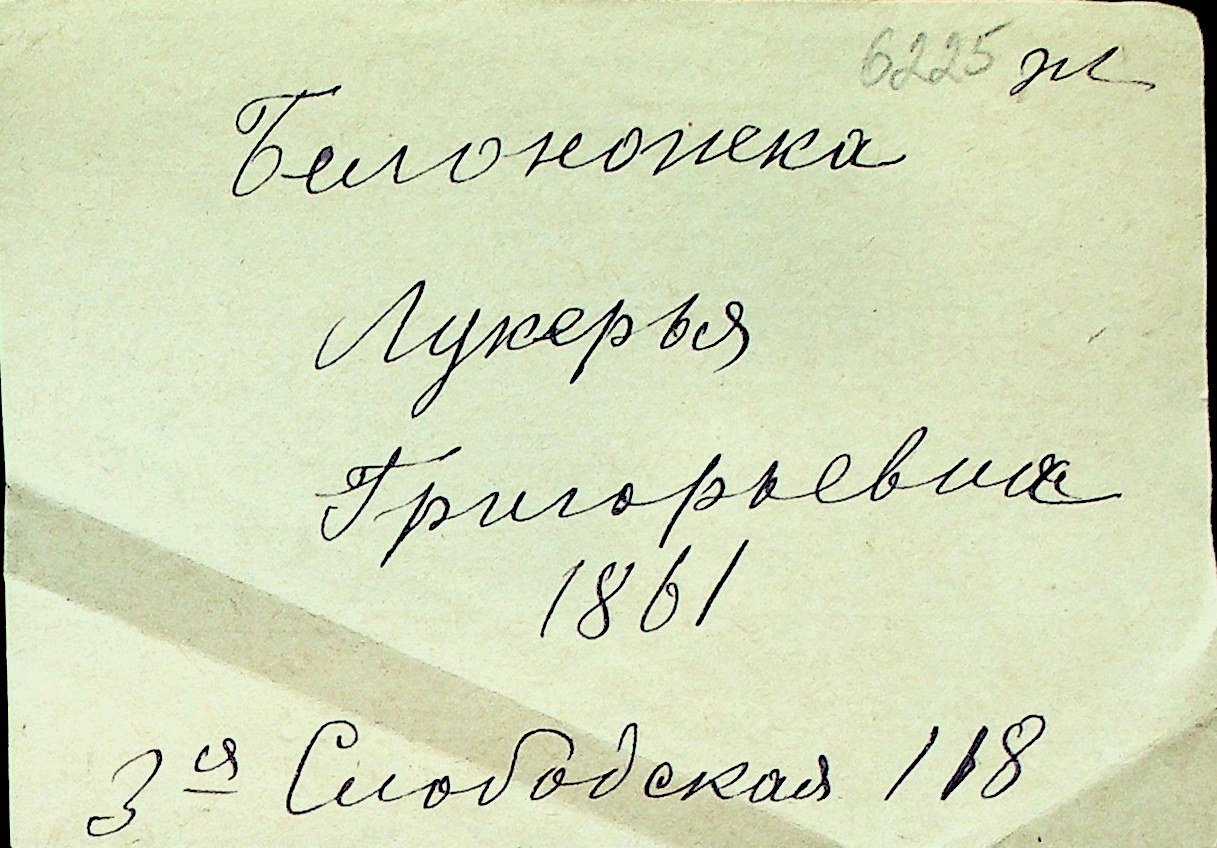 6225 ж
Белоножка
Лукерья
Григорьевна
1861
3ая Слободская 118